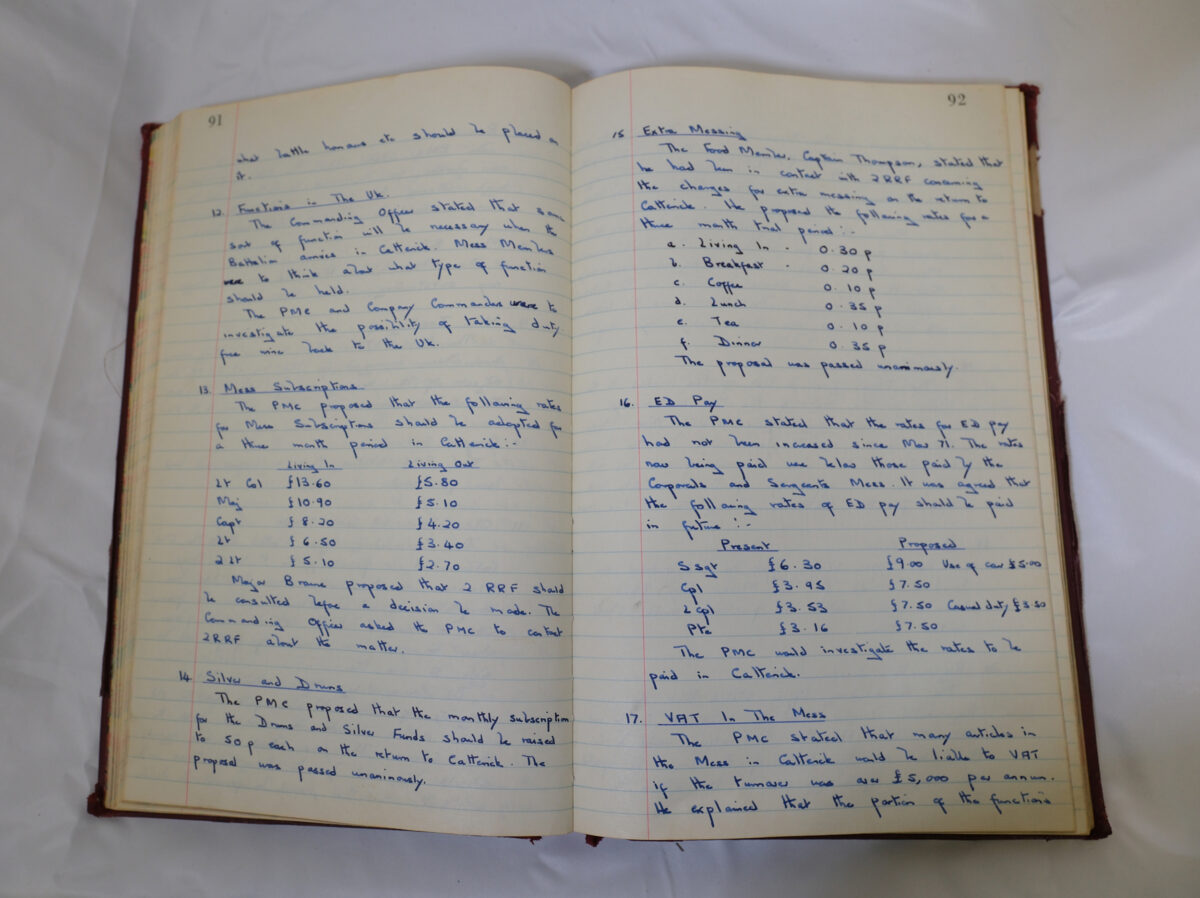 91
what battle honours etc should be placed on
it.
12. Functions in The Uk.
The Commanding Officer stated that some
sort of function will be necessary when the
Battalion arrives in Catterick. Mess Members
were to think about what type of function
should be held.
The PMC and Company Commanders were to
investigate the possibility of taking duty
free wine back to the Uk.
13. Mess Subscriptions
The PMC proposed that the following rates
for Mess Subscriptions should be adopted for
a three month period in Catterick:-
Living In Living Out
Lt Col £13.60 £5.80
Maj £10.90 £5.10
Capt £8.20 £4.20
Lt £6.50 £3.40
2 Lt £5.10 £2.70
Major Braine proposed that 2 RRF should
be consulted before a decision be made. The
Commanding Officer asked the PMC to contact
2RRF about the matter.
14. Silver and Drums
The PMC proposed that the monthly subscription
for the Drums and Silver Funds should be raised
to 50p each on the return to Catterick. The
proposal was passed unanimously.
92
15 Extra Messing
The Food Member, Captain Thompson, stated that
he had been in contact with 2RRF concerning
the charges for extra messing on the return to
Catterick. He proposed the following rates for a
three month trial period :-
a. Living In - 0.30 p
b. Breakfast - 0.20 p
c. Coffee 0.10 p
d. Lunch 0.35 p
e. Tea 0.10 p
f. Dinner 0.35 p
The proposal was passed unanimously.
16. ED Pay
The PMC stated that the rates for ED pay
had not been increased since Mar 71. The rates
now being paid were below those paid by the
Corporals and Sergeants Mess. It was agreed that
the following rates of ED pay should be paid
in future :-
Present Proposed
SSgt £6.30 £9.00 Use of car £5.00
Cpl £3.95 £7.50
LCpl £3.53 £7.50 Casual duty £3.50
Pte £3.16 £7.50
The PMC would investigate the rates to be
paid in Catterick.
17. VAT In The Mess
The PMC stated that many articles in
the Mess in Catterick would be liable to VAT
if the turnover was over £5,000 per annum.
He explained that the portion of the functions